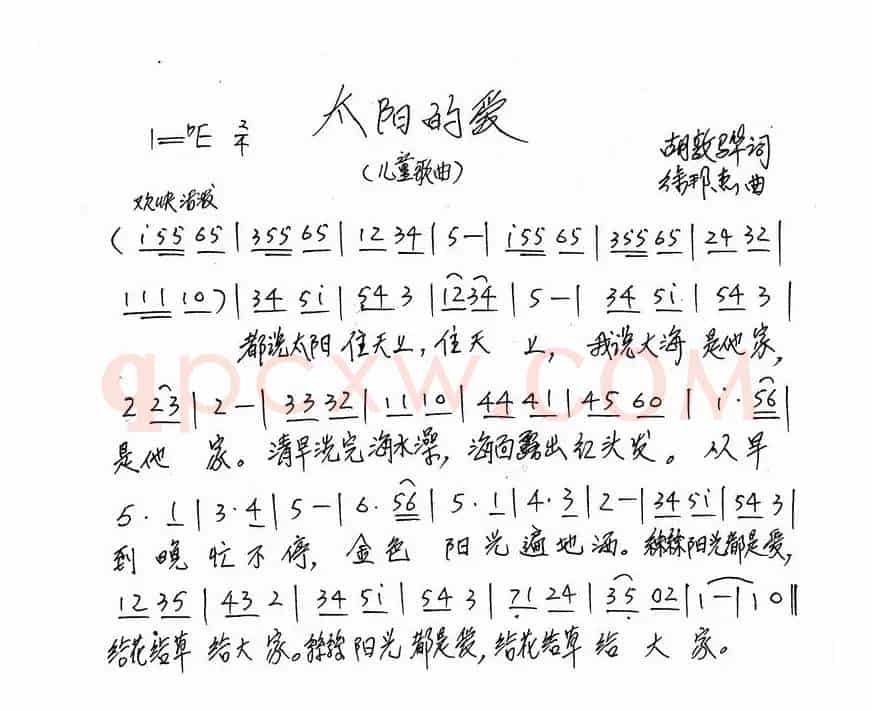 太阳的爱
1=♭E 2/4
（儿童歌曲）
胡敦骅词
徐邦杰曲
欢快活泼
( i55 65 | 355 65 | 12 34 | 5 - | i55 65 | 355 65 | 24 32 |
111 10 ) | 34 5i | 54 3 | 12 34 | 5 - | 34 5i | 54 3 |
都说太阳 住天上，住天 上， 我说大海 是他家，
2 23 | 2 - | 33 32 | 11 10 | 44 41 | 45 60 | i · 56 |
是他 家。 清早洗完海水澡，海面露出红头发。 从早
5 · 1 | 3 · 4 | 5 - | 6 · 56 | 5 · 1 | 4 · 3 | 2 - | 34 5i | 54 3 |
到 晚 忙 不 停， 金色 阳 光 遍 地 洒。 丝丝阳光都是爱，
12 35 | 43 2 | 34 5i | 54 3 | 71 24 | 35 02 | 1 - | 1 0 ‖
给花给草 给大 家。丝丝 阳光 都是爱，给花给草 给 大 家。
qpcxw.COM